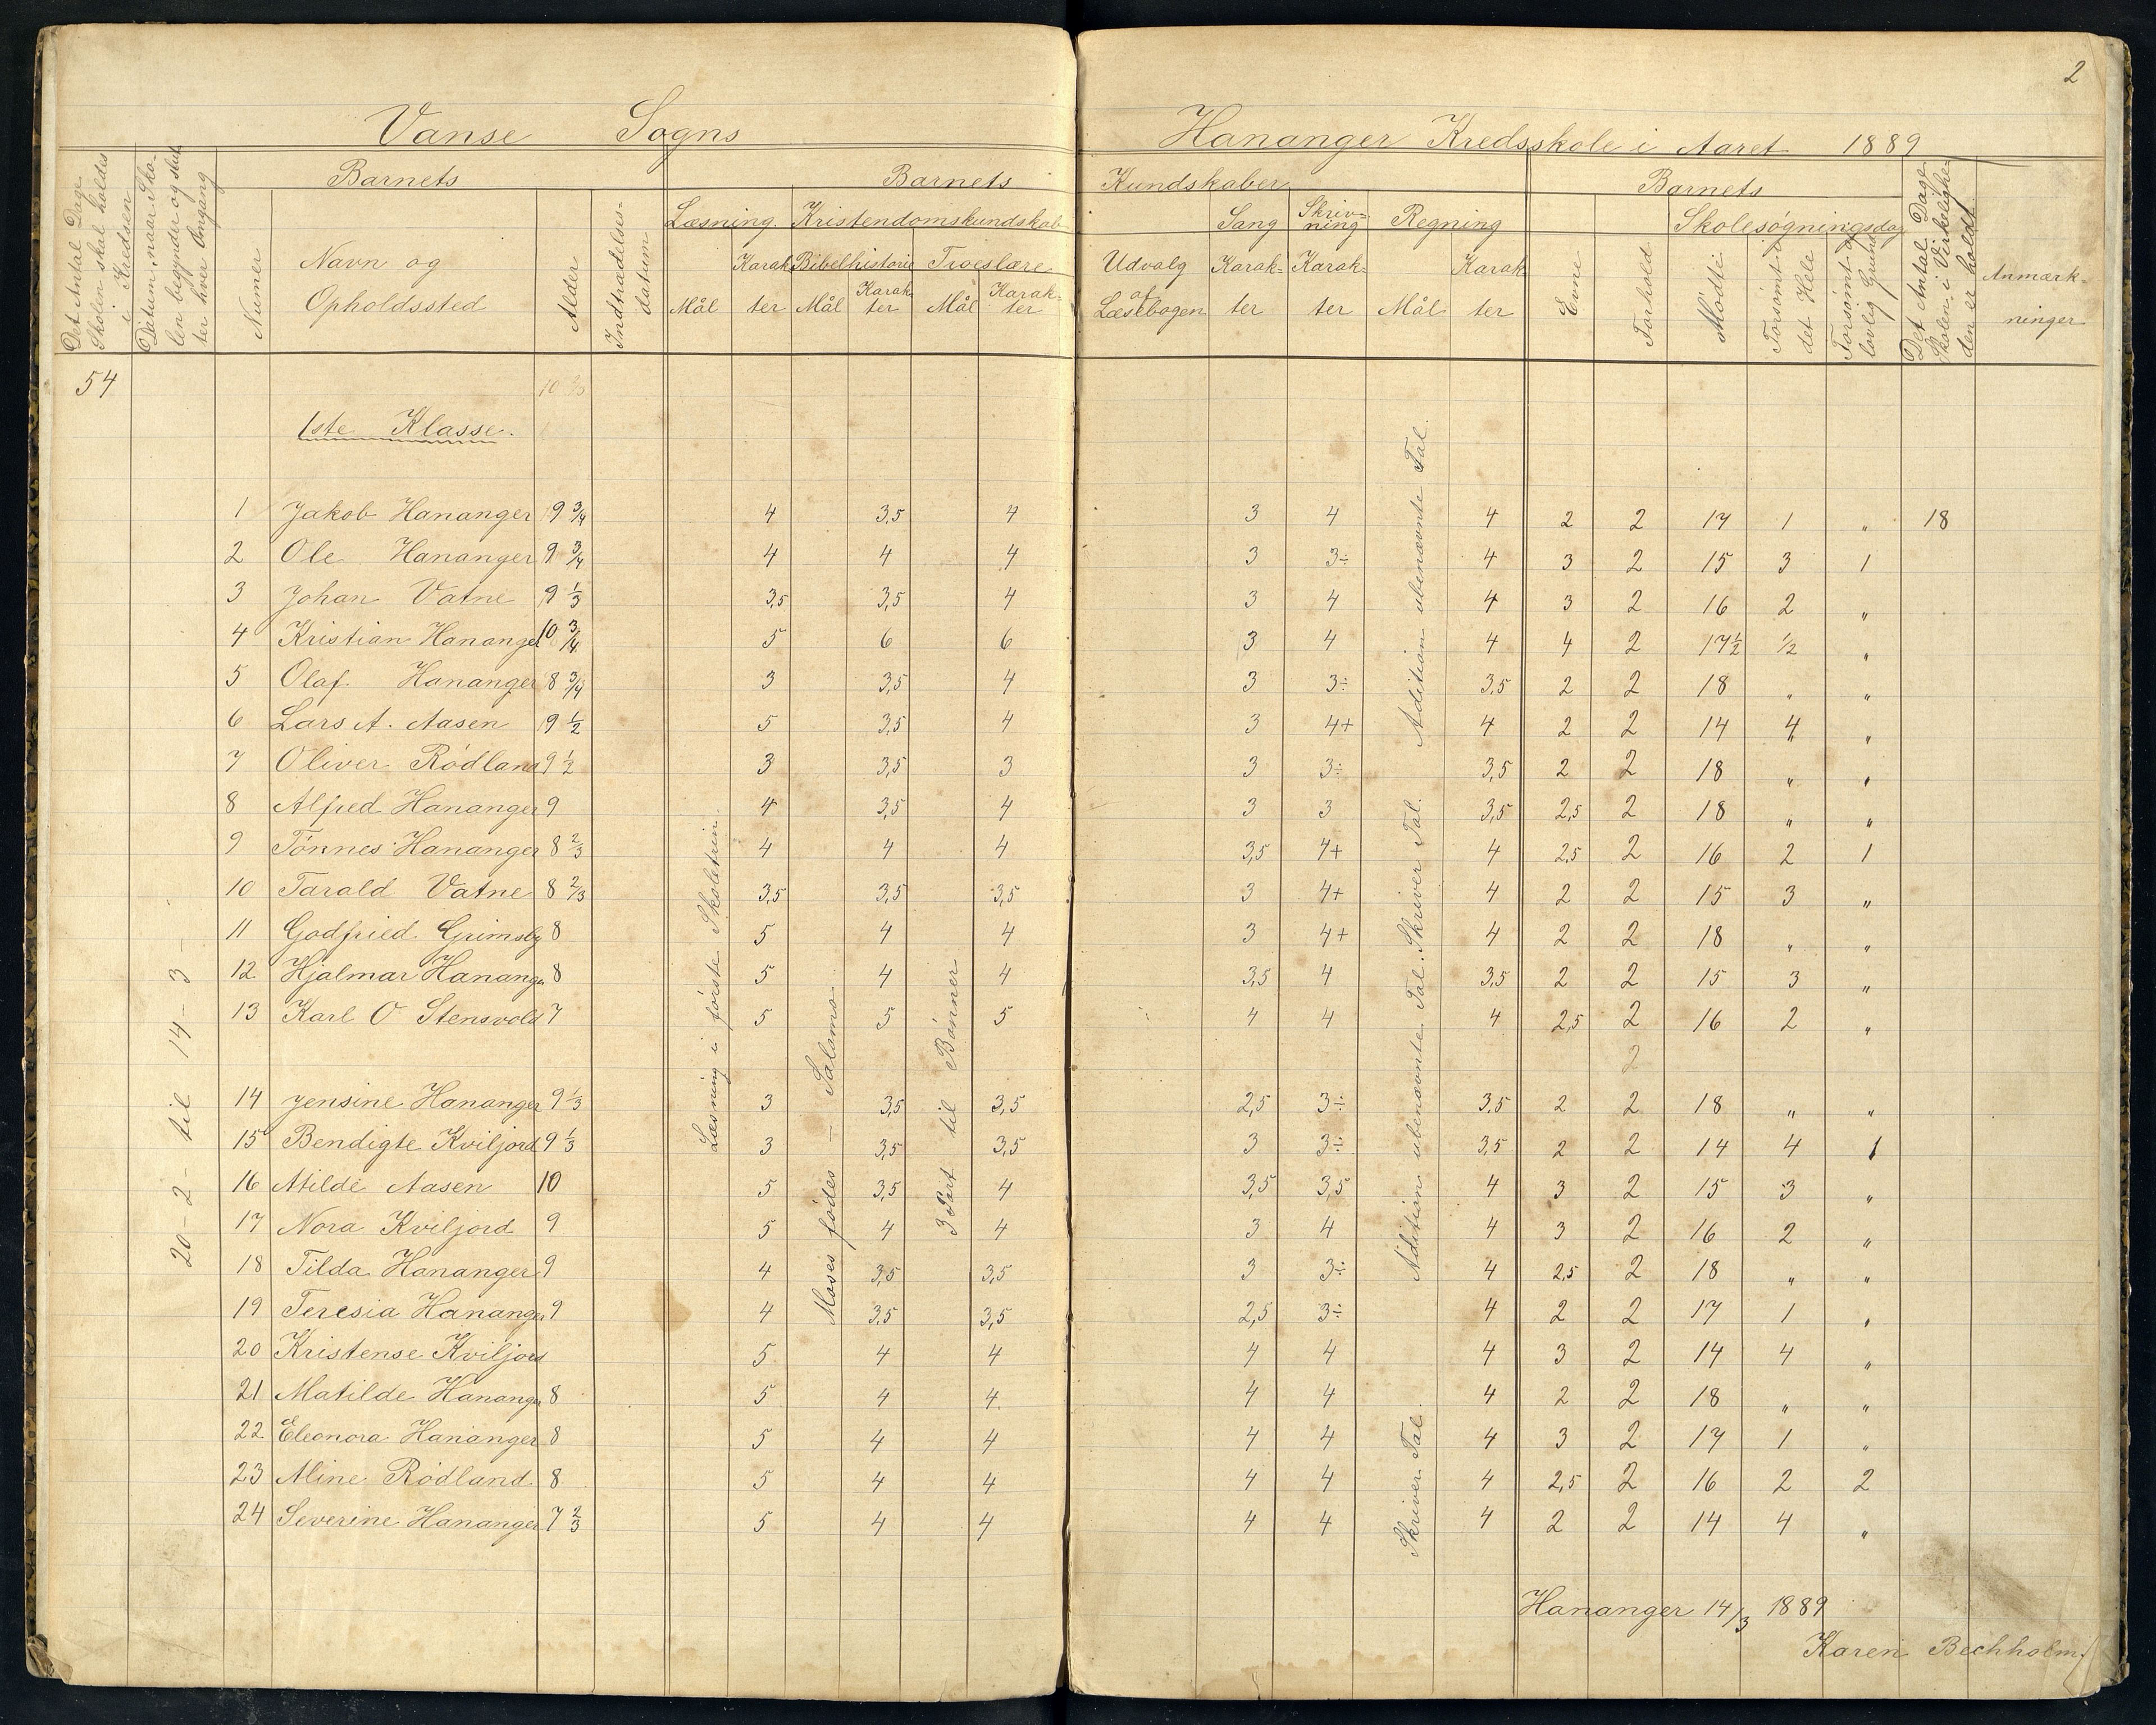 2
Vanse Sogns Hananger Kredsskole i Aaret 1889
Det Antal Dage Skolen skal holdes i Kredsen
Datum, naar Skolen begynder og slutter hver Omgang
Barnets
Numer
Navn og Opholdssted
Alder
Indtrædelsesdatum
Barnets Kundskaber
Læsning. Kristendomskundskab Sang Skrivning Regning
Bibelhistorie Troeslære Udvalg af Læsebogen
Mål Karakter Mål Karakter Mål Karakter Karakter Karakter Mål Karakter
Barnets
Evne
Forhold
Skolesøgningsdag
Mødt i
Forsømt i det Hele
Forsømt af lovlig Grund
Det Antal Dage Skolen i Virkeligheden er holdt
Anmærkninger
54
1ste Klasse.
20-2- til 14-3-
Læsning i første Skoletrin.
Moses fødes — Salomo
3 Part til Bønner
Adition ubenævnte Tal.
Adition ubenævnte Tal. Skriver Tal.
Skriver Tal.
1 Jakob Hananger 9 3/4 4 3,5 4 3 4 4 2 2 17 1 „ 18
2 Ole Hananger 9 3/4 4 4 4 3 3÷ 4 3 2 15 3 1
3 Johan Vatne 9 1/3 3,5 3,5 4 3 4 4 3 2 16 2 „
4 Kristian Hananger 10 3/4 5 6 6 3 4 4 4 2 17 1/2 1/2 „
5 Olaf Hananger 8 3/4 3 3,5 4 3 3÷ 3,5 2 2 18 „ „
6 Lars A. Aasen 9 1/2 5 3,5 4 3 4+ 4 2 2 14 4 „
7 Oliver Rødland 9 1/2 3 3,5 3 3 3÷ 3,5 2 2 18 „ „
8 Alfred Hananger 9 4 3,5 4 3 3 3,5 2,5 2 18 „ „
9 Tønnes Hananger 8 2/3 4 4 4 3,5 4+ 4 2,5 2 16 2 1
10 Tarald Vatne 8 2/3 3,5 3,5 3,5 3 4+ 4 2 2 15 3 „
11 Godfried Grimsby 8 5 4 4 3 4+ 4 2 2 18 „ „
12 Hjalmar Hananger 8 5 4 4 3,5 4 3,5 2 2 15 3 „
13 Karl O Stensvold 7 5 5 5 4 4 4 2,5 2 16 2 „
2
14 Jensine Hananger 9 1/3 3 3,5 3,5 2,5 3÷ 3,5 2 2 18 „ „
15 Bendigte Kviljord 9 1/3 3 3,5 3,5 3 3÷ 3,5 2 2 14 4 1
16 Alilde Aasen 10 5 3,5 4 3,5 3,5 4 3 2 15 3 „
17 Nora Kviljord 9 5 4 4 3 4 4 3 2 16 2 „
18 Tilda Hananger 9 4 3,5 3,5 3 3÷ 4 2,5 2 18 „ „
19 Teresia Hananger 9 4 3,5 3,5 2,5 3÷ 4 2 2 17 1 „
20 Kristense Kviljord 5 4 4 4 4 4 3 2 14 4 „
21 Matilde Hananger 8 5 4 4 4 4 4 2 2 18 „ „
22 Eleonora Hananger 8 5 4 4 4 4 4 3 2 17 1 „
23 Aline Rødland 8 5 4 4 4 4 4 2,5 2 16 2 2
24 Severine Hananger 7 2/3 5 4 4 4 4 4 2 2 14 4 „
Hananger 14/3 1889
Karen Bechholm